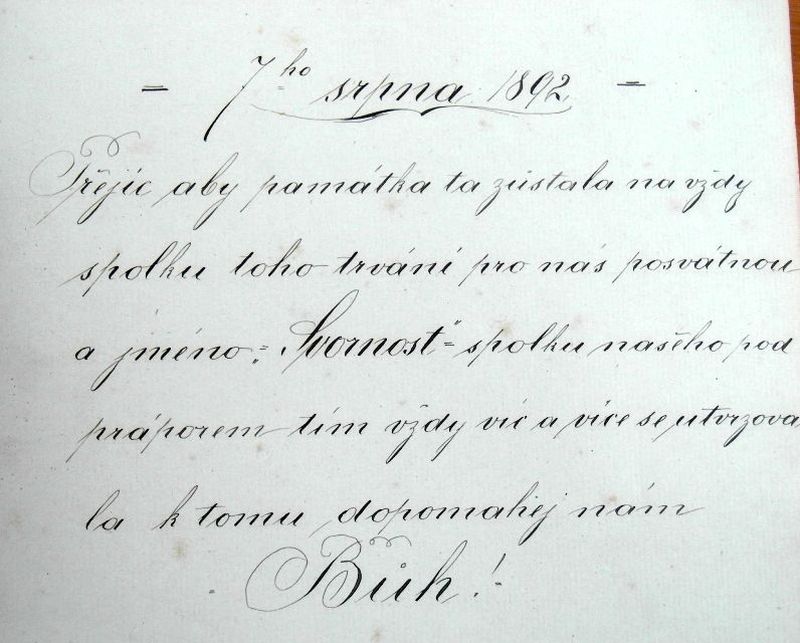 = 7ho srpna 1892. =
Přejíc aby památka ta zůstala navždy
spolku toho trvání pro nás posvátnou
a jméno „Svornost“ spolku našeho pod
práporem tím vždy víc a více se utvrzova
la k tomu dopomahej nám
Bůh!